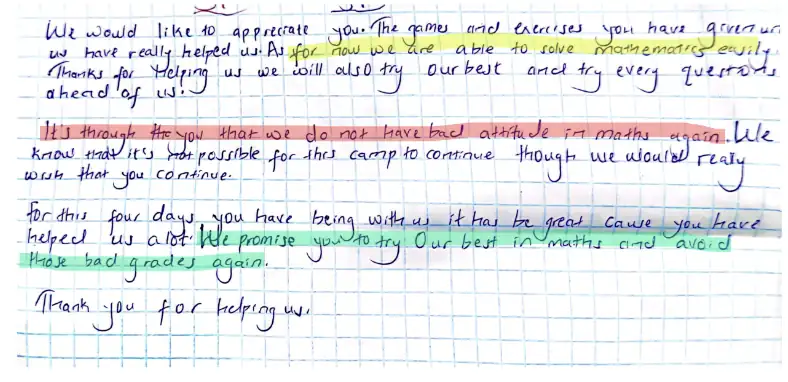 We would like to appreciate you. The games and exercises you have given un
us have really helped us. As for now we are able to solve mathematics easily.
Thanks for Helping us we will also try Our best and try every questions
ahead of us.
It's through the you that we do not have bad attitude in maths again. We
know that it's not possible for this camp to continue though we would really
wish that you continue.
For this four days you have being with us it has be great cause you have
helped us alot. We promise you to try Our best in maths and avoid
those bad grades again.
Thank you for helping us.